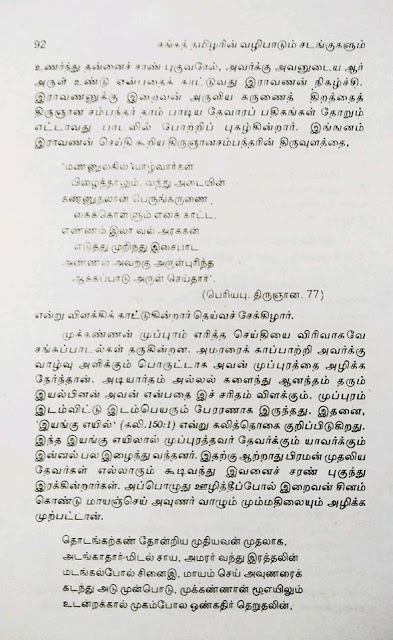 92 சங்கத் தமிழரின் வழிபாடும் சடங்குகளும்
உணர்ந்து தன்னைச் சரண் புகுவரேல், அவர்க்கு அவனுடைய ஆர்
அருள் உண்டு என்பதைக் காட்டுவது இராவணன் நிகழ்ச்சி.
இராவணனுக்கு இறைவன் அருளிய கருணைத் திறத்தைத்
திருஞான சம்பந்தர் தாம் பாடிய தேவாரப் பதிகங்கள் தோறும்
எட்டாவது பாடலில் போற்றிப் புகழ்கின்றார். இங்ஙனம்
இராவணன் செய்தி கூறிய திருஞானசம்பந்தரின் திருவுளத்தை,
'மண்ணுலகில் வாழ்வார்கள்
பிழைத்தாலும், வந்து அடையின்
கண்ணுதலான் பெருங்கருணை
கைக்கொள்ளும் எனக் காட்ட,
எண்ணம் இலா வல் அரக்கன்
எடுத்து முறிந்து இசைபாட
அண்ணல் அவற்கு அருள்புரிந்த
ஆக்கப்பாடு அருள் செய்தார்'.
(பெரியபு. திருஞான. 77)
என்று விளக்கிக் காட்டுகின்றார் தெய்வச் சேக்கிழார்.
முக்கண்ணன் முப்புரம் எரித்த செய்தியை விரிவாகவே
சங்கப்பாடல்கள் தருகின்றன. அமரரைக் காப்பாற்றி அவர்க்கு
வாழ்வு அளிக்கும் பொருட்டாக அவன் முப்புரத்தை அழிக்க
நேர்ந்தான். அடியார்தம் அல்லல் களைந்து ஆனந்தம் தரும்
இயல்பினன் அவன் என்பதை இச் சரிதம் விளக்கும். முப்புரம்
இடம்விட்டு இடம்பெயரும் பேரரணாக இருந்தது. இதனை,
'இயங்கு எயில்' (கலி.150:1) என்று கலித்தொகை குறிப்பிடுகிறது.
இந்த இயங்கு எயிலால் முப்புரத்தவர் தேவர்க்கும் யாவர்க்கும்
இன்னல் பல இழைந்து வந்தனர். இதற்கு ஆற்றாது பிரமன் முதலிய
தேவர்கள் எல்லாரும் கூடிவந்து இவனைச் சரண் புகுந்து
இரக்கின்றார்கள். அப்பொழுது ஊழித்தீப்போல் இறைவன் சினம்
கொண்டு மாயஞ்செய் அவுணர் வாழும் மும்மதிலையும் அழிக்க
முற்பட்டான்.
தொடங்கற்கண் தோன்றிய முதியவன் முதலாக,
அடங்காதார்-மிடல் சாய, அமரர் வந்து இரத்தலின்
மடங்கல்போல் சினைஇ, மாயம் செய் அவுணரைக்
கடந்து அடு முன்பொடு, முக்கண்ணான் மூஎயிலும்
உடன்றக்கால் முகம்போல ஒண்கதிர் தெறுதலின்,